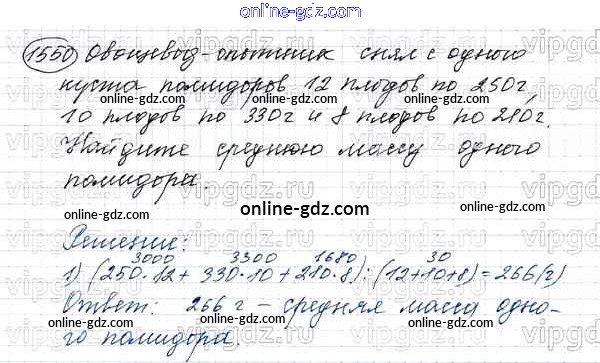 online-gdz.com
1550 Овощевод-опытник снял с одного
куста помидоров 12 плодов по 250г,
online-gdz.com online-gdz.com online-gdz.com
10 плодов по 330г и 8 плодов по 210г.
Найдите среднюю массу одного
помидора.
online-gdz.com
Решение:
3000 3300 1680 30
1) (250·12 + 330·10 + 210·8) : (12+10+8) = 266(г)
online-gdz.com online-gdz.com online-gdz.com
Ответ: 266 г – средняя масса одно-
го помидора.
online-gdz.com